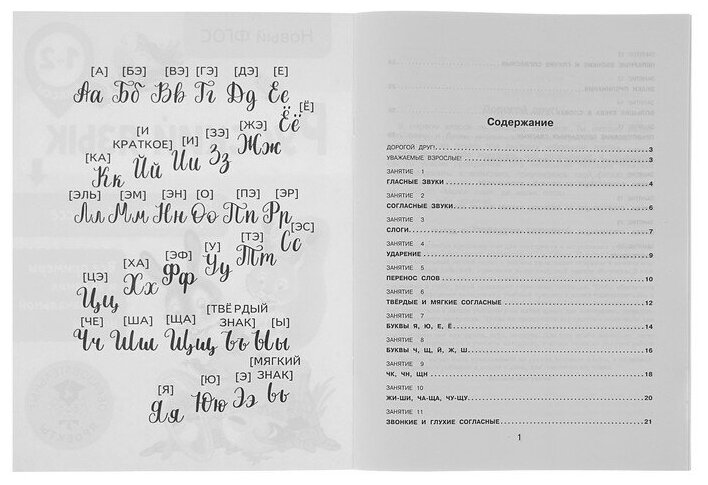 [А] [БЭ] [ВЭ] [ГЭ] [ДЭ] [Е]
Аа Бб Вв Гг Дд Ее
[Ё]
Ёё
[КА] [И КРАТКОЕ] [И] [ЗЭ] [ЖЭ]
Кк Йй Ии Зз Жж
[ЭЛЬ] [ЭМ] [ЭН] [О] [ПЭ] [ЭР]
Лл Мм Нн Оо Пп Рр
[ЭС]
Сс
[ЦЭ] [ХА] [ЭФ] [У] [ТЭ]
Цц Хх Фф Уу Тт
[ЧЕ] [ША] [ЩА] [ТВЁРДЫЙ ЗНАК] [Ы]
Чч Шш Щщ ъ Ыы
[Я] [Ю] [Э] [МЯГКИЙ ЗНАК]
Яя Юю Ээ ь
Содержание
ДОРОГОЙ ДРУГ! 3
УВАЖАЕМЫЕ ВЗРОСЛЫЕ! 3
ЗАНЯТИЕ 1
ГЛАСНЫЕ ЗВУКИ 4
ЗАНЯТИЕ 2
СОГЛАСНЫЕ ЗВУКИ 6
ЗАНЯТИЕ 3
СЛОГИ 7
ЗАНЯТИЕ 4
УДАРЕНИЕ 9
ЗАНЯТИЕ 5
ПЕРЕНОС СЛОВ 10
ЗАНЯТИЕ 6
ТВЁРДЫЕ И МЯГКИЕ СОГЛАСНЫЕ 12
ЗАНЯТИЕ 7
БУКВЫ Я, Ю, Е, Ё 14
ЗАНЯТИЕ 8
БУКВЫ Ч, Щ, Й, Ж, Ш 16
ЗАНЯТИЕ 9
ЧК, ЧН, ЩН 18
ЗАНЯТИЕ 10
ЖИ-ШИ, ЧА-ЩА, ЧУ-ЩУ 20
ЗАНЯТИЕ 11
ЗВОНКИЕ И ГЛУХИЕ СОГЛАСНЫЕ 21
1